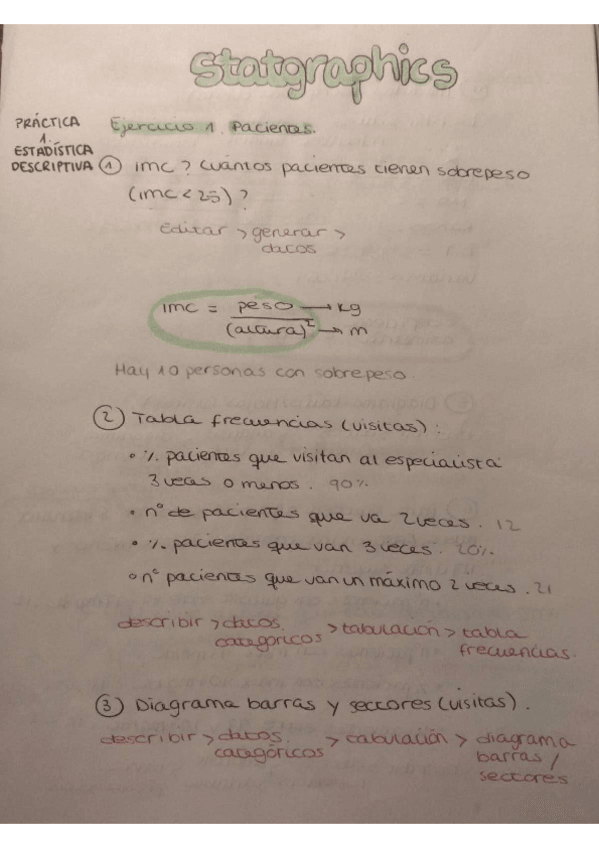 Statgraphics
PRÁCTICA
1.
ESTADÍSTICA
DESCRIPTIVA
Ejercicio 1. Pacientes.
① imc? Cuántos pacientes tienen sobrepeso
(imc < 25)?
Editar > generar >
datos
imc = peso → kg
(altura)² → m
Hay 10 personas con sobrepeso.
② Tabla frecuencias (visitas):
• % pacientes que visitan al especialista
3 veces o menos. 90%
• nº de pacientes que va 2 veces. 12
• % pacientes que van 3 veces. 20%.
• nº pacientes que van un máximo 2 veces. 21
describir > datos categóricos > tabulación > tabla frecuencias.
③ Diagrama barras y sectores (visitas).
describir > datos categóricos > tabulación > diagrama barras / sectores